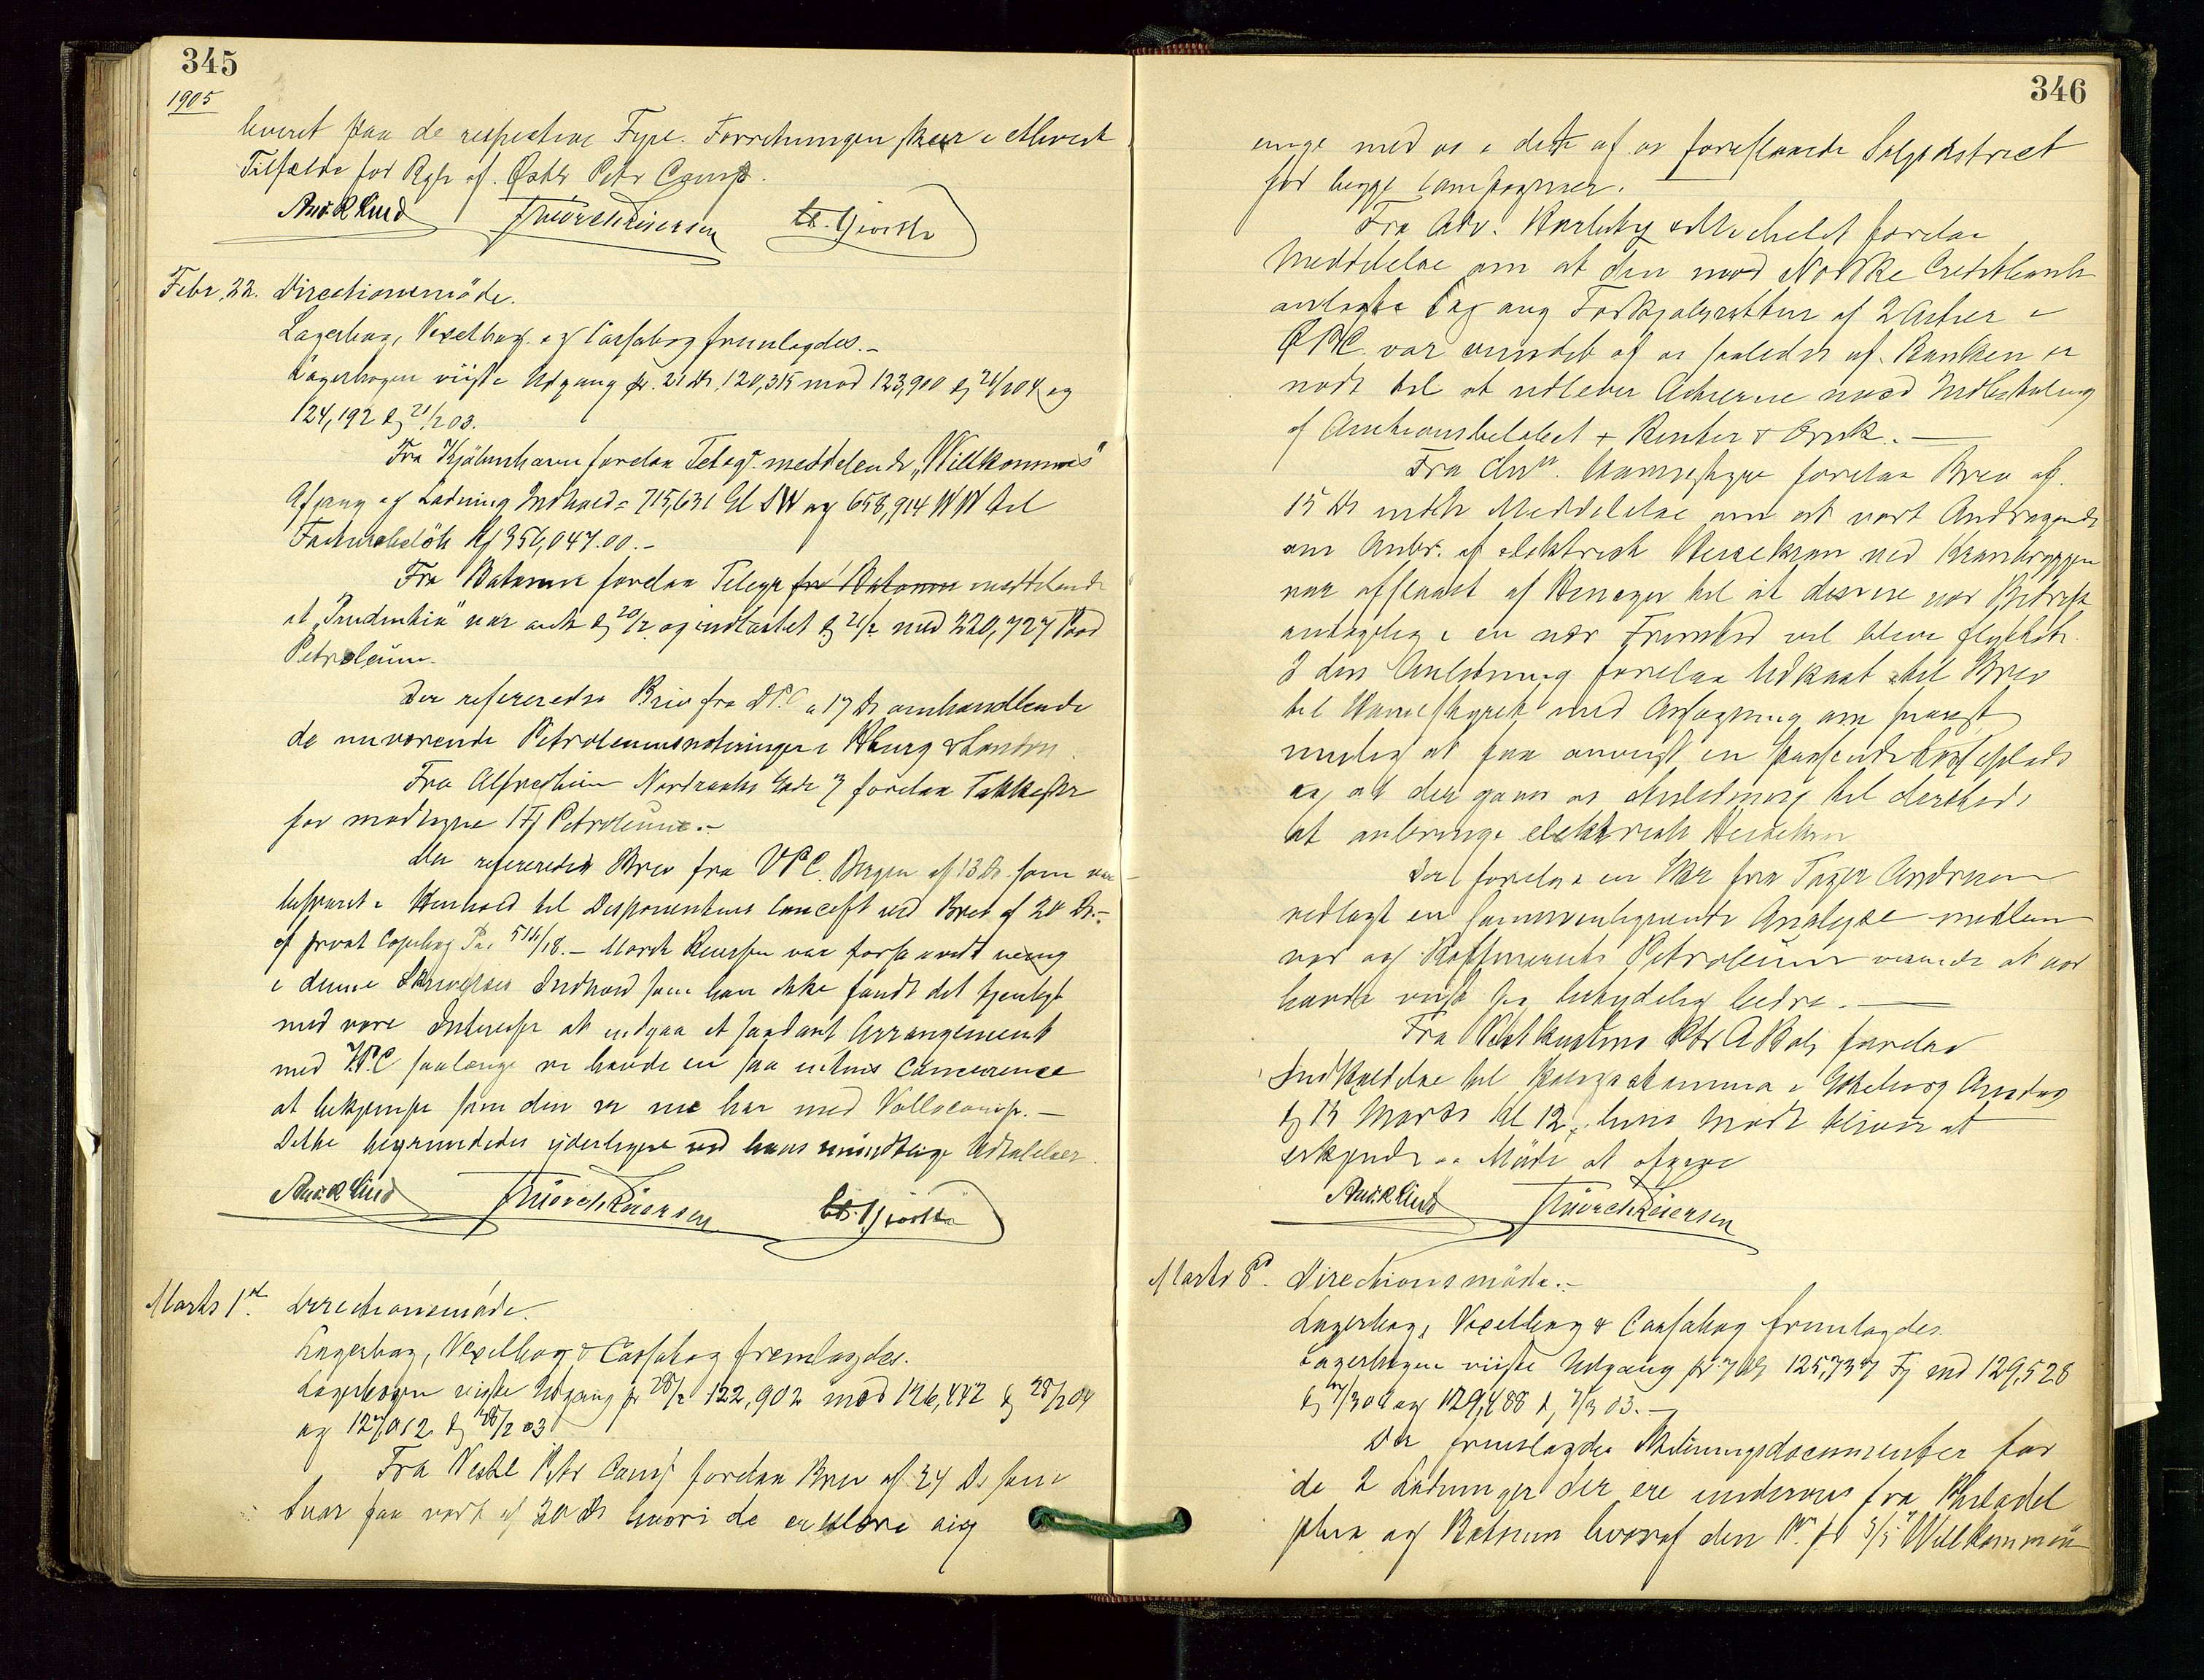 345
1905
leveret paa de respective Fype. Forretningen skeer i ethvert
Tilfælde for Rgn af Østl. Petr Comp.
And. R Lind ThMorch Reiersen Chr. Gjørtz
Febr. 22. Directionsmöde.
Lagerbog, Vexelbog og Cassabog fremlagdes.-
Lagerbogen viiste Udgang pr. 21 ds. 120,315 mod 123,900 Fj 21/2 04 og
124,192 Fj 21/2 03.
Fra Kjöbenhavn forelaa Telegr. meddelende „Willkommen"
Afgang og Ladning Indhold = 715,631 Gl SW og 658,914 WW til
Facturabelöb Rf 356,047.00.-
Fra Batoum forelaa Telegr fra Batoum meddelende
at „Prudentia" var ank d. 20/2 og indlastet d. 21/2 med 220,727 Pood
Petroleum.
Der refereredes Brev fra DPC a 17 Ds omhandlende
de nuværende Petroleumsnoteringer i Hburg & London.
Fra Alfheim Nordraaks Gade 7 forelaa Takkeskr
for modtagne 1 Fj Petroleum.-
Der refereredes Brev fra VPC. Bergen af 13 Ds. som var
besvaret i Henhold til Disponentens Concept ved Brev af 20 Ds.-
cf privat Copibog Pa. 516/18.- Morch Reiersen var forsaavidt uenig
i denne Skrivelses Indhold som han ikke fandt det tjenligt
med vore Interesser at indgaa et saadant Arrangement
med VPC saalænge vi havde en saa intens Concurrence
at bekjempe som den vi nu har med Vallöcomp.-
Dette begrundedes yderligere ved hans mündtlige Udtalelser.
And. R Lind ThMorch Reiersen Chr. Gjørtz
Marts 1st. Directionsmöde.
Lagerbog, Vexelbog & Cassabog fremlagdes.
Lagerbogen viiste Udgang pr 28/2 122,902 mod 126,442 Fj 28/2 04
og 127,012 Fj 28/2 03
Fra Vestl Petr Comp forelaa Brev af 24 Ds som
Svar paa vort af 20 Ds hvori de erklære sig
346
enige med os i dette af os foreslaaede Salgsdistrict
for begge Compagnier.
Fra Adv. Harbitz & Michelet forelaa
Meddelelse om at den mod Norske Creditbank
anlagte Sag ang Forkjøbsretten af 2 Actier i
ØPC. var vundet af os saaledes at Banken er
nødt til at udlevere Actierne mod Indbetaling
af Auctionsbeløbet + Renter & Omk.-
Fra Chra. Havnestyre forelaa Brev af
15 Ds indeh Meddelelse om at vort Andragende
om Anbr. af elektrisk Heisekran ved Kranbryggen
var afslaaet af Hensyn til at desværre vor Bedrift
antagelig i en nær Fremtid vil blive flyttet.
I den Anledning forelaa Udkast til Brev
til Havnestyret med Ansøgning om snarest
mulig at faa anvist en passende Losseplads
og at der gaves os Anledning til dersteds
at anbringe elektrisk Heisekran
Der forelaa en Skr fra Fager Andersen
vedlagt en sammenlignende Analyse mellem
vor og Raffinerets Petroleum visende at vor
havde vist sig betydelig bedre.-
Fra Vestkustens Ptr A Bolag forelaa
Indkaldelse til Bolagsstämma i Göteborg Onsdag
d. 15 Marts kl 12, hvis Möde bliver at
erkjende og Möde at afgive
And. R Lind ThMorch Reiersen
Marts 8d. Directionsmöde.-
Lagerbog, Vexelbog & Cassabog fremlagdes
Lagerbogen viiste Udgang pr 7 ds 125,737 Fj md 129,528
Fj 7/3 04 og 129,488 d. 7/3 03.-
Der fremlagdes Skibningsdocumenter for
de 2 Ladninger der ere underveis fra Philadel
phia og Batoum hvoraf den 1ste pr S/S „Willkommen"